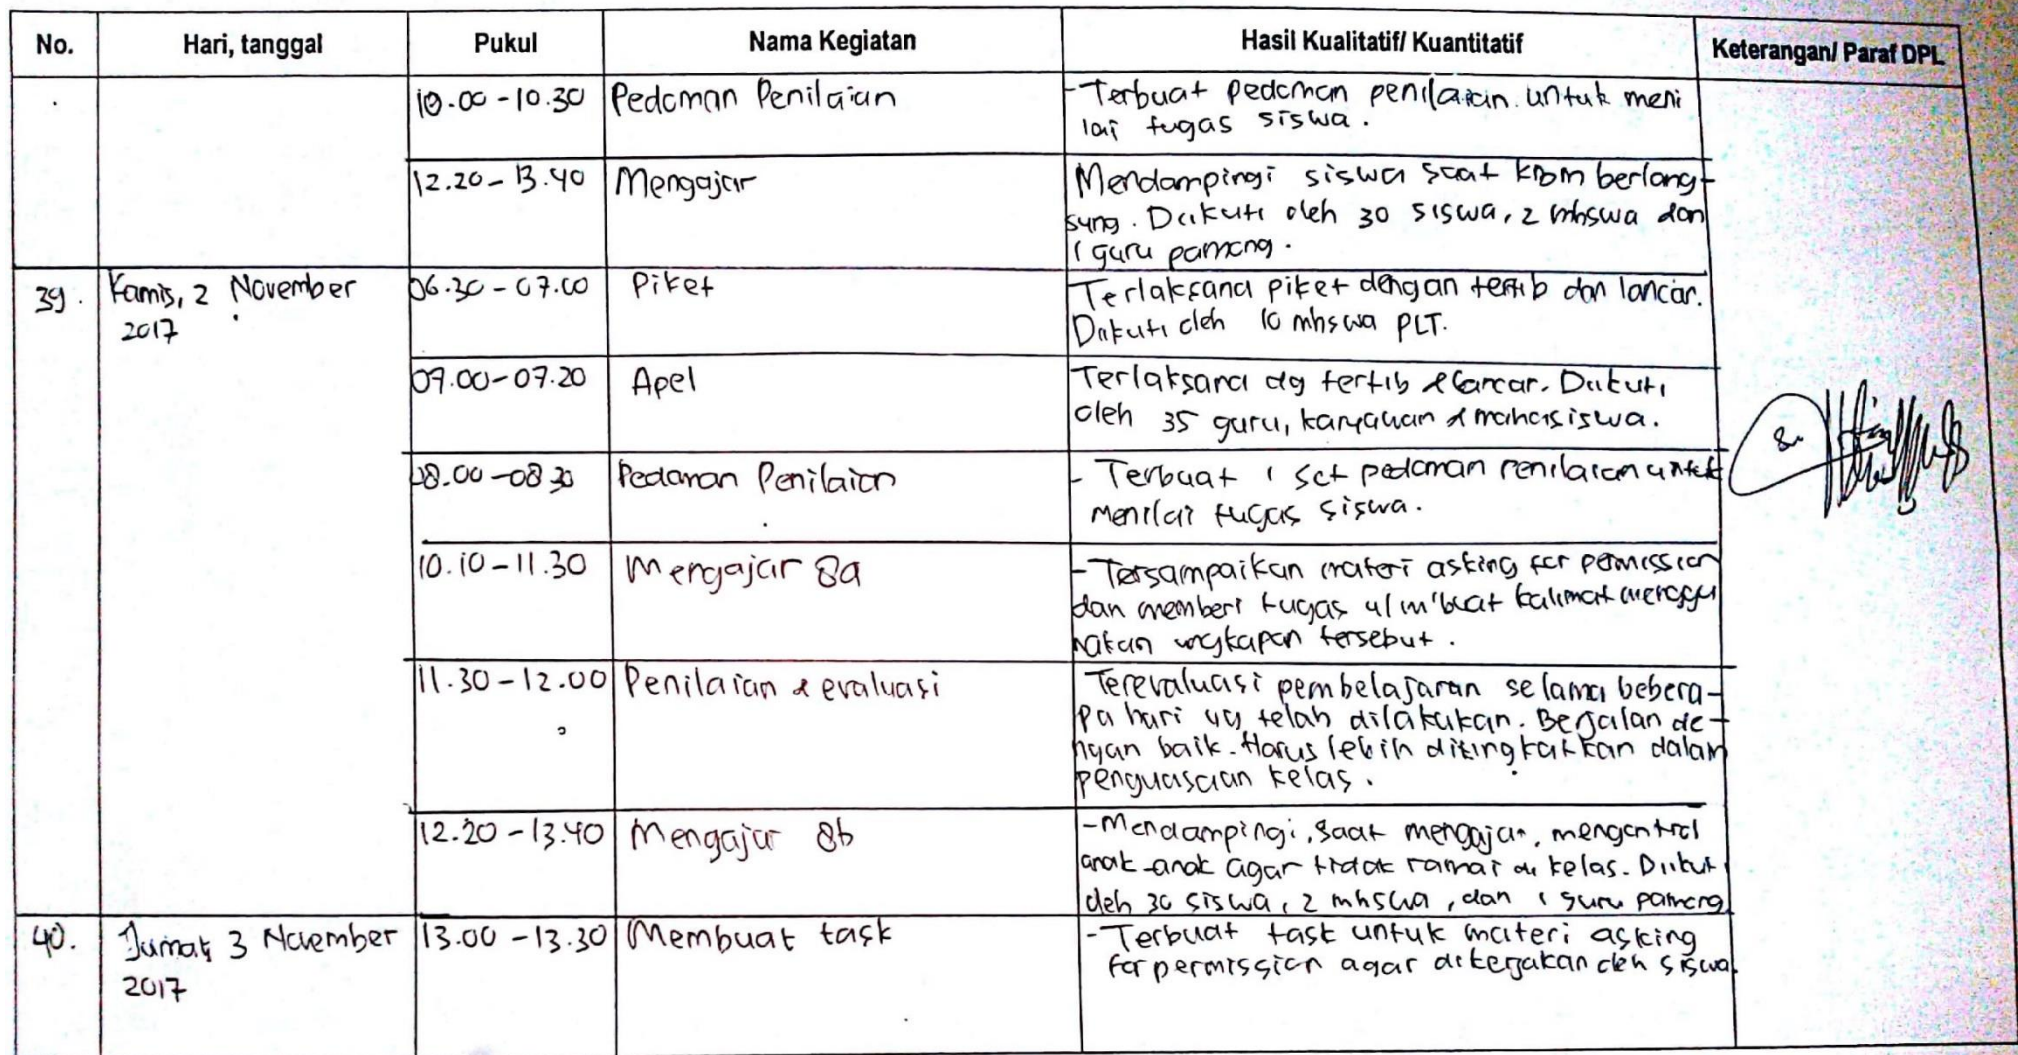 No. Hari, tanggal Pukul Nama Kegiatan Hasil Kualitatif/ Kuantitatif Keterangan/ Paraf DPL
10.00 - 10.30 Pedoman Penilaian - Terbuat pedoman penilaian untuk meni
lai tugas siswa.
12.20 - 13.40 Mengajar Mendampingi siswa saat KBM berlang-
sung. Diikuti oleh 30 siswa, 2 mhswa dan
1 guru pamong.
39. Kamis, 2 November 06.30 - 07.00 Piket Terlaksana piket dengan tertib dan lancar.
2017 Diikuti oleh 10 mhswa PLT.
07.00 - 07.20 Apel Terlaksana dg tertib & lancar. Diikuti
oleh 35 guru, karyawan & mahasiswa.
08.00 - 08.30 Pedoman Penilaian - Terbuat 1 set pedoman penilaian untuk
menilai tugas siswa.
10.10 - 11.30 Mengajar 8a - Tersampaikan materi asking for permission
dan memberi tugas u/ m'buat kalimat menggu
nakan ungkapan tersebut.
11.30 - 12.00 Penilaian & evaluasi Terevaluasi pembelajaran selama bebera-
pa hari yg telah dilakukan. Berjalan de-
ngan baik. Harus lebih ditingkatkan dalam
penguasaan kelas.
12.20 - 13.40 Mengajar 8b - Mendampingi, saat mengajar, mengontrol
anak-anak agar tidak ramai di kelas. Diikuti
oleh 30 siswa, 2 mhswa, dan 1 guru pamong
40. Jumat, 3 November 13.00 - 13.30 Membuat task - Terbuat task untuk materi asking
2017 for permission agar dikerjakan oleh siswa.